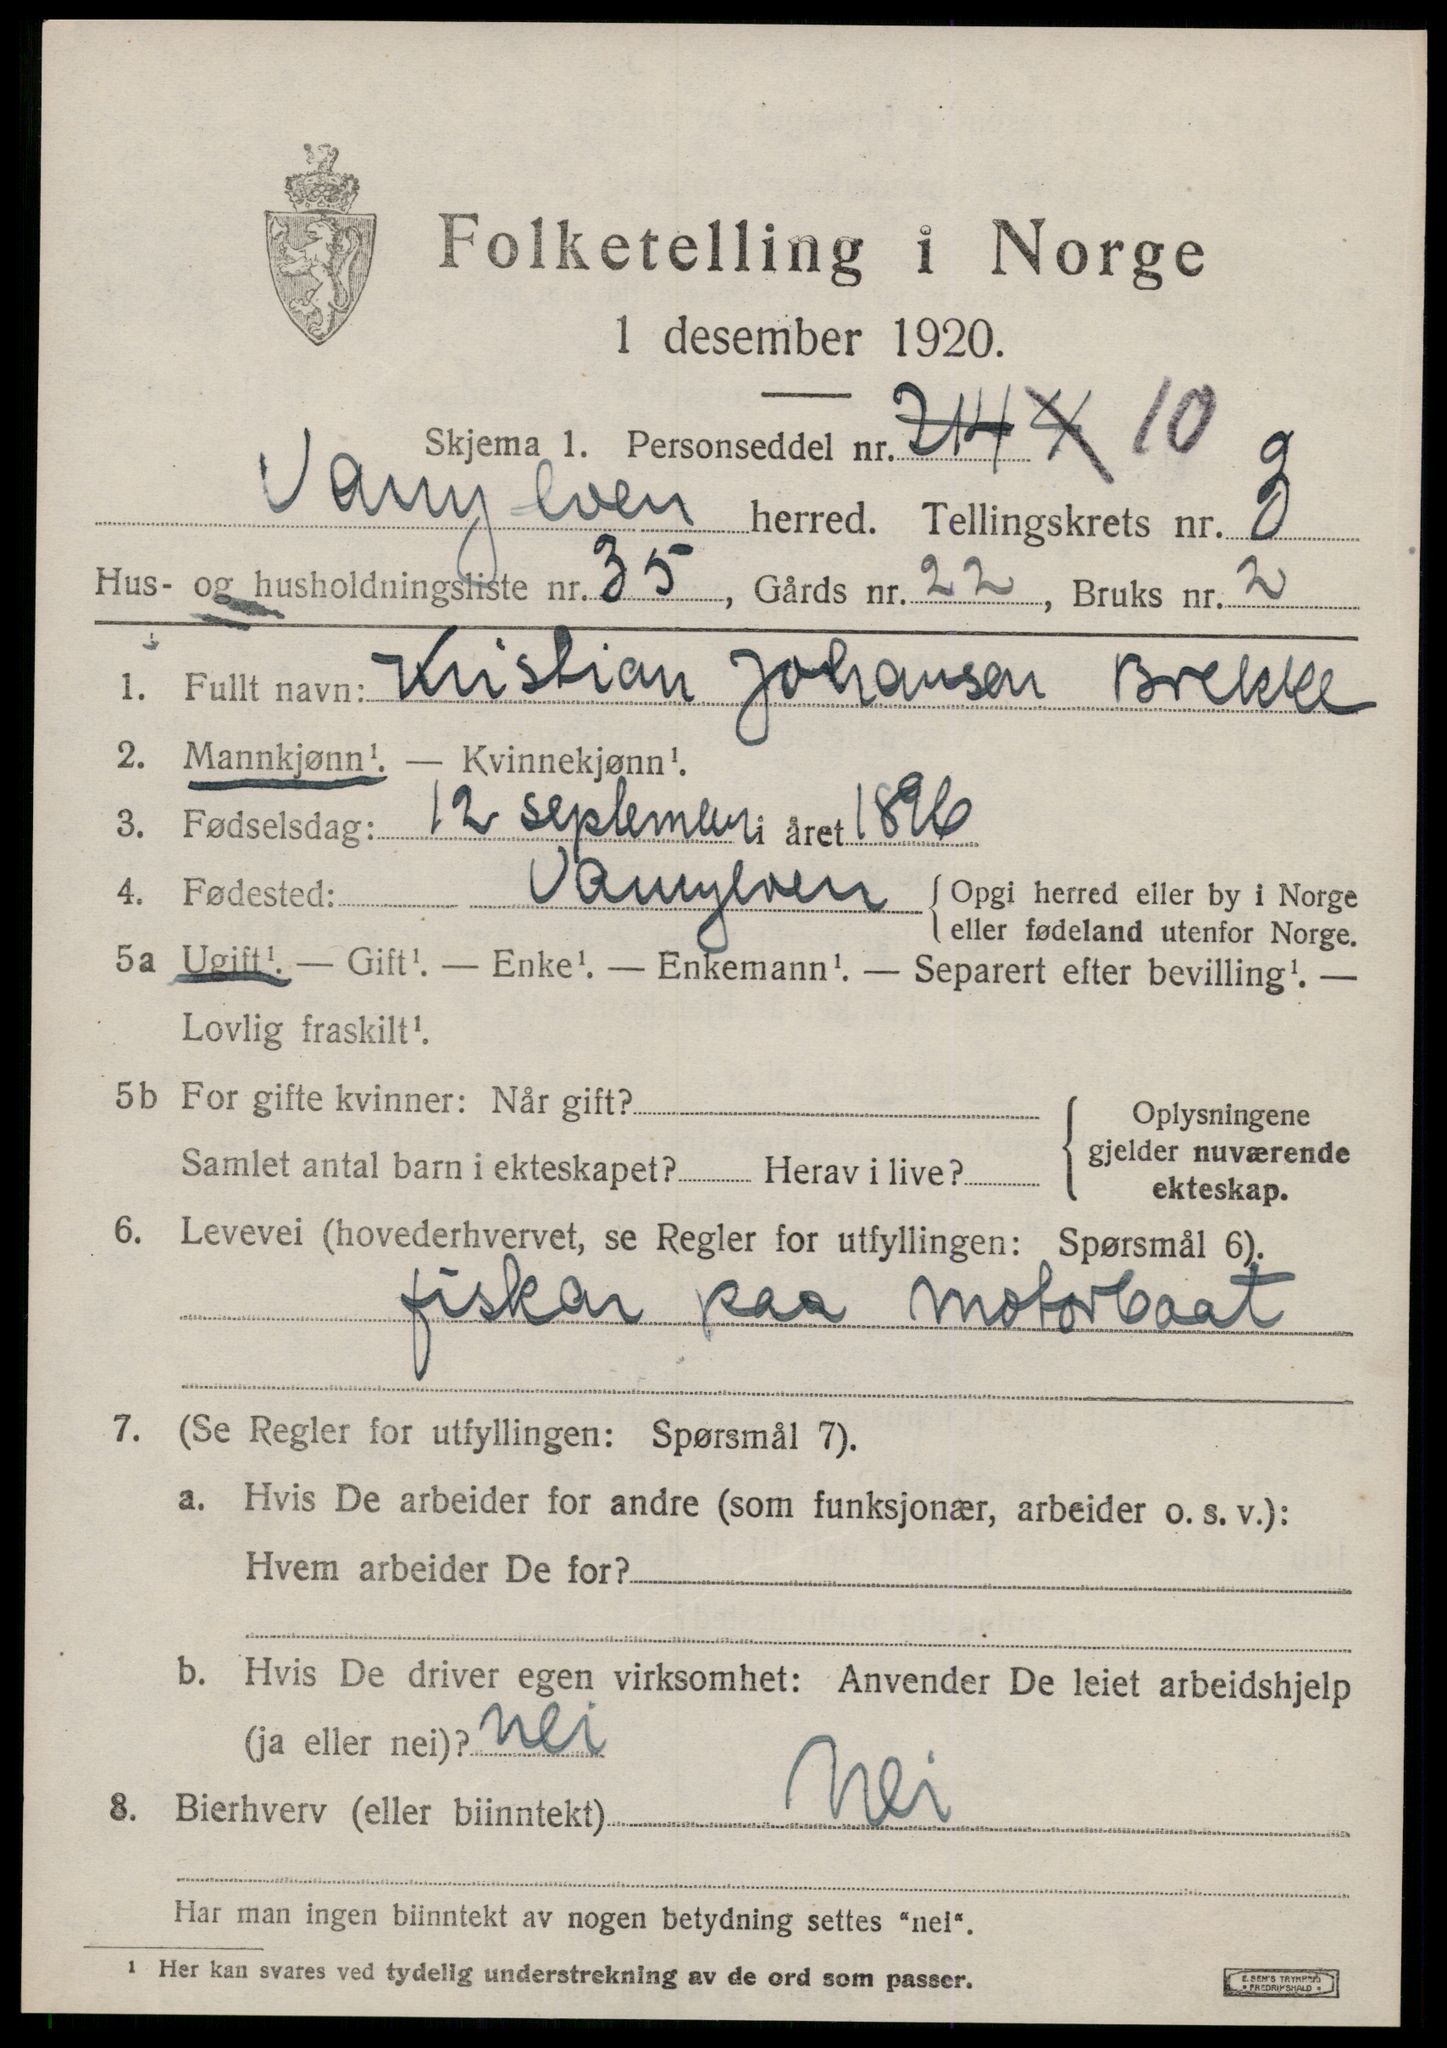 Folketelling i Norge
1 desember 1920.
Skjema 1. Personseddel nr. 214 4 10
Vanylven herred. Tellingskrets nr. 3
Hus- og husholdningsliste nr. 35, Gårds nr. 22, Bruks nr. 2
1. Fullt navn: Kristian Johansen Brekke
2. Mannkjønn¹. — Kvinnekjønn¹.
3. Fødselsdag: 12 september i året 1896
4. Fødested: Vannylven { Opgi herred eller by i Norge
eller fødeland utenfor Norge.
5a Ugift¹. — Gift¹. — Enke¹. — Enkemann¹. — Separert efter bevilling¹. —
Lovlig fraskilt¹.
5b For gifte kvinner: Når gift?
Samlet antal barn i ekteskapet? Herav i live?
{ Oplysningene
gjelder nuværende
ekteskap.
6. Levevei (hovederhvervet, se Regler for utfyllingen: Spørsmål 6).
fiskar paa motorbaat
7. (Se Regler for utfyllingen: Spørsmål 7).
a. Hvis De arbeider for andre (som funksjonær, arbeider o. s. v.):
Hvem arbeider De for?
b. Hvis De driver egen virksomhet: Anvender De leiet arbeidshjelp
(ja eller nei)? nei
8. Bierhverv (eller biinntekt) Nei
Har man ingen biinntekt av nogen betydning settes “nei“.
1 Her kan svares ved tydelig understrekning av de ord som passer.
E. SEM'S TRYKKERI
• FREDRIKSHALD •